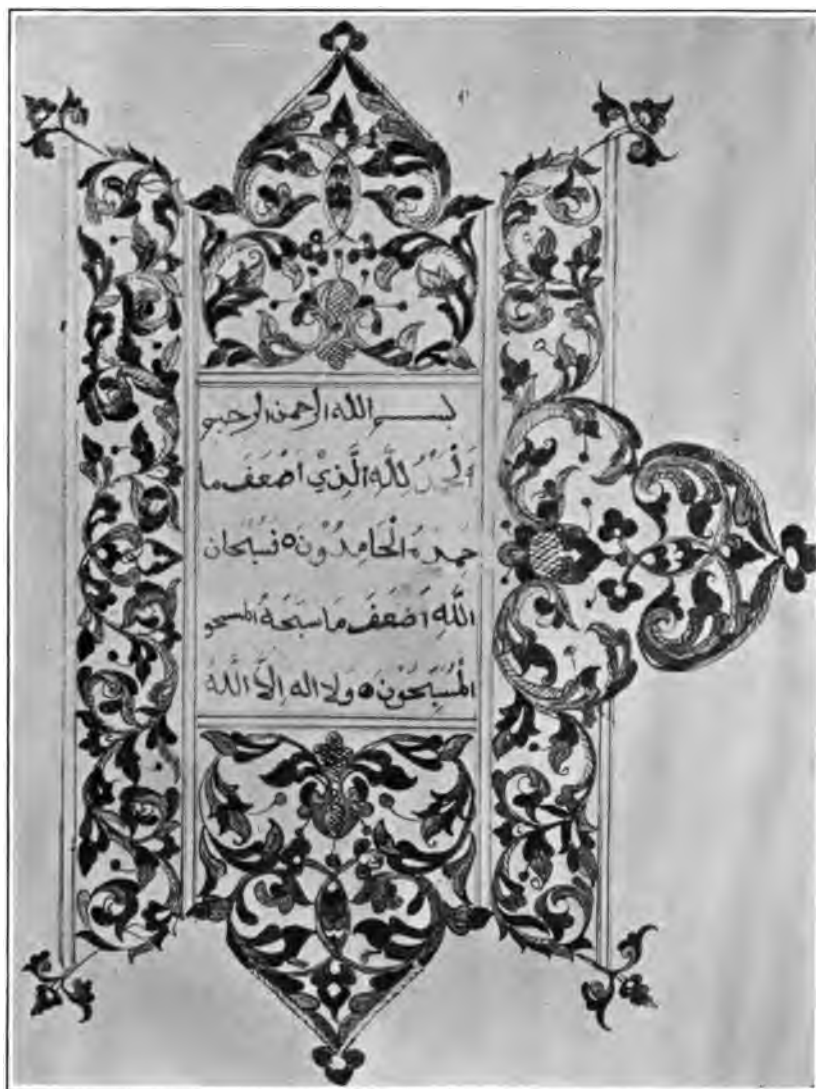 بسم الله الرحمن الرحيم
اَلْحَمْدُ لِلَّهِ الَّذِيْ اَضْعَفَ مَا
حَمِدَهُ الْحَامِدُوْنَ ه فَسُبْحَانَ
اللَّهِ اَضْعَفَ مَا سَبَّحَهُ المسبحو
الْمُسَبِّحُوْنَ ه وَلا اله اِلاَّ اللَّهُ